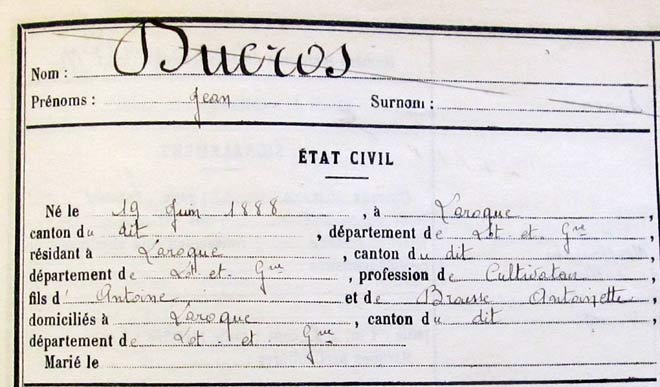 Nom : Ducros
Prénoms : Jean Surnom :
ÉTAT CIVIL
Né le 19 Juin 1888, à Laroque,
canton du dit, département de Lot et Gne,
résidant à Laroque, canton du dit,
département de Lot et Gne, profession de Cultivateur
fils d' Antoine et de Brousse Antoinette
domiciliés à Laroque, canton du dit,
département de Lot et Gne
Marié le